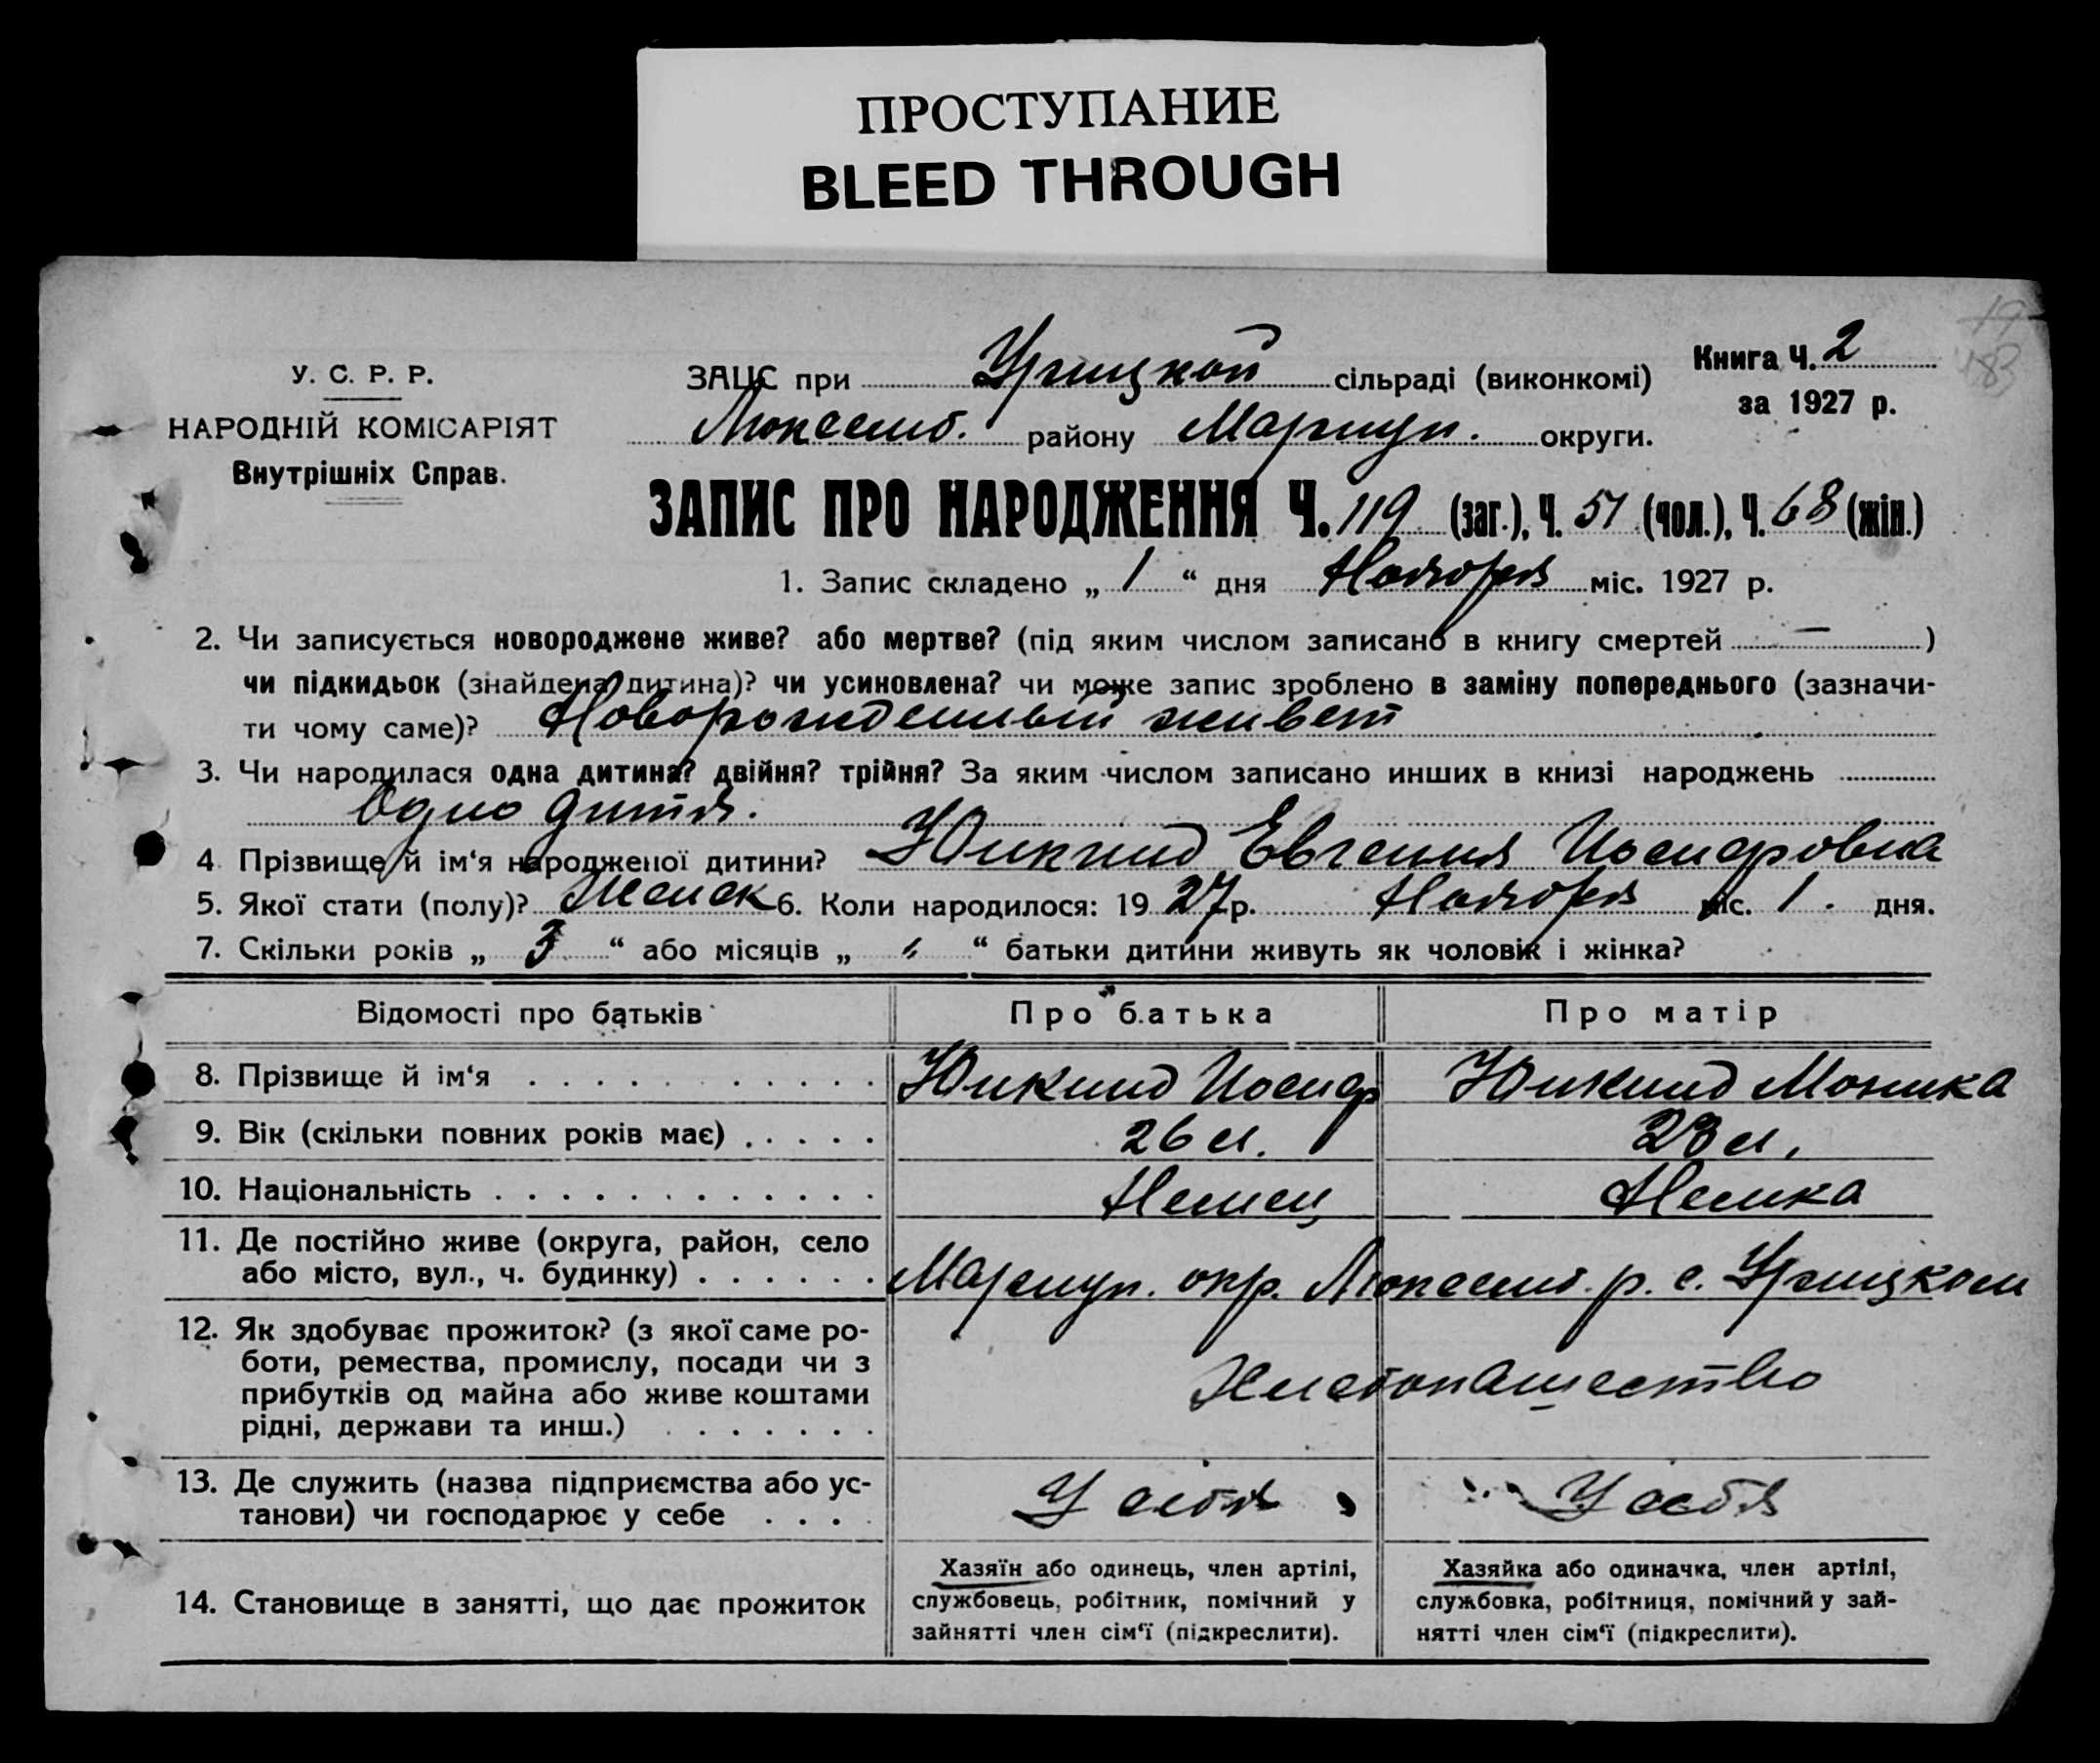 ПРОСТУПАНИЕ
BLEED THROUGH
У. С. Р. Р.
НАРОДНІЙ КОМІСАРІЯТ
Внутрішніх Справ.
ЗАЦС при Урицкой сільраді (виконкомі)
Люксемб. району Мариуп. округи.
Книга Ч. 2
за 1927 р.
ЗАПИС ПРО НАРОДЖЕННЯ Ч. 119 (заг.), Ч. 51 (чол.), Ч. 68 (жін.)
1. Запис складено „ 1 “ дня Ноября міс. 1927 р.
2. Чи записується новороджене живе? або мертве? (під яким числом записано в книгу смертей — )
чи підкидьок (знайдена дитина)? чи усиновлена? чи може запис зроблено в заміну попереднього (зазначи-
ти чому саме)? Новорожденный живет
3. Чи народилася одна дитина? двійня? трійня? За яким числом записано инших в книзі народжень
Одно дитя.
4 Прізвище й ім‘я народженої дитини? Юнкинд Евгения Иосифовна
5. Якої стати (полу)? Женск 6. Коли народилося: 19 27 р. Ноября міс. 1. дня.
7. Скільки років „ 3 “ або місяців „ “ батьки дитини живуть як чоловік і жінка?
Відомості про батьків
Про батька
Про матір
8. Прізвище й ім‘я
Юнкинд Иосиф
Юнкинд Моника
9. Вік (скільки повних років має)
26 л.
23 л.
10. Національність
Немец
Немка
11. Де постійно живе (округа, район, село
або місто, вул., ч. будинку)
Мариуп. окр. Люксемб. р. с. Урицком
12. Як здобуває прожиток? (з якої саме ро-
боти, ремества, промислу, посади чи з
прибутків од майна або живе коштами
рідні, держави та инш.)
Хлебопашество
13. Де служить (назва підприємства або ус-
танови) чи господарює у себе
У себя
У себя
14. Становище в занятті, що дає прожиток
Хазяїн або одинець, член артілі,
службовець, робітник, помічний у
зайнятті член сім‘ї (підкреслити).
Хазяйка або одиначка, член артілі,
службовка, робітниця, помічний у зай-
нятті член сім‘ї (підкреслити).